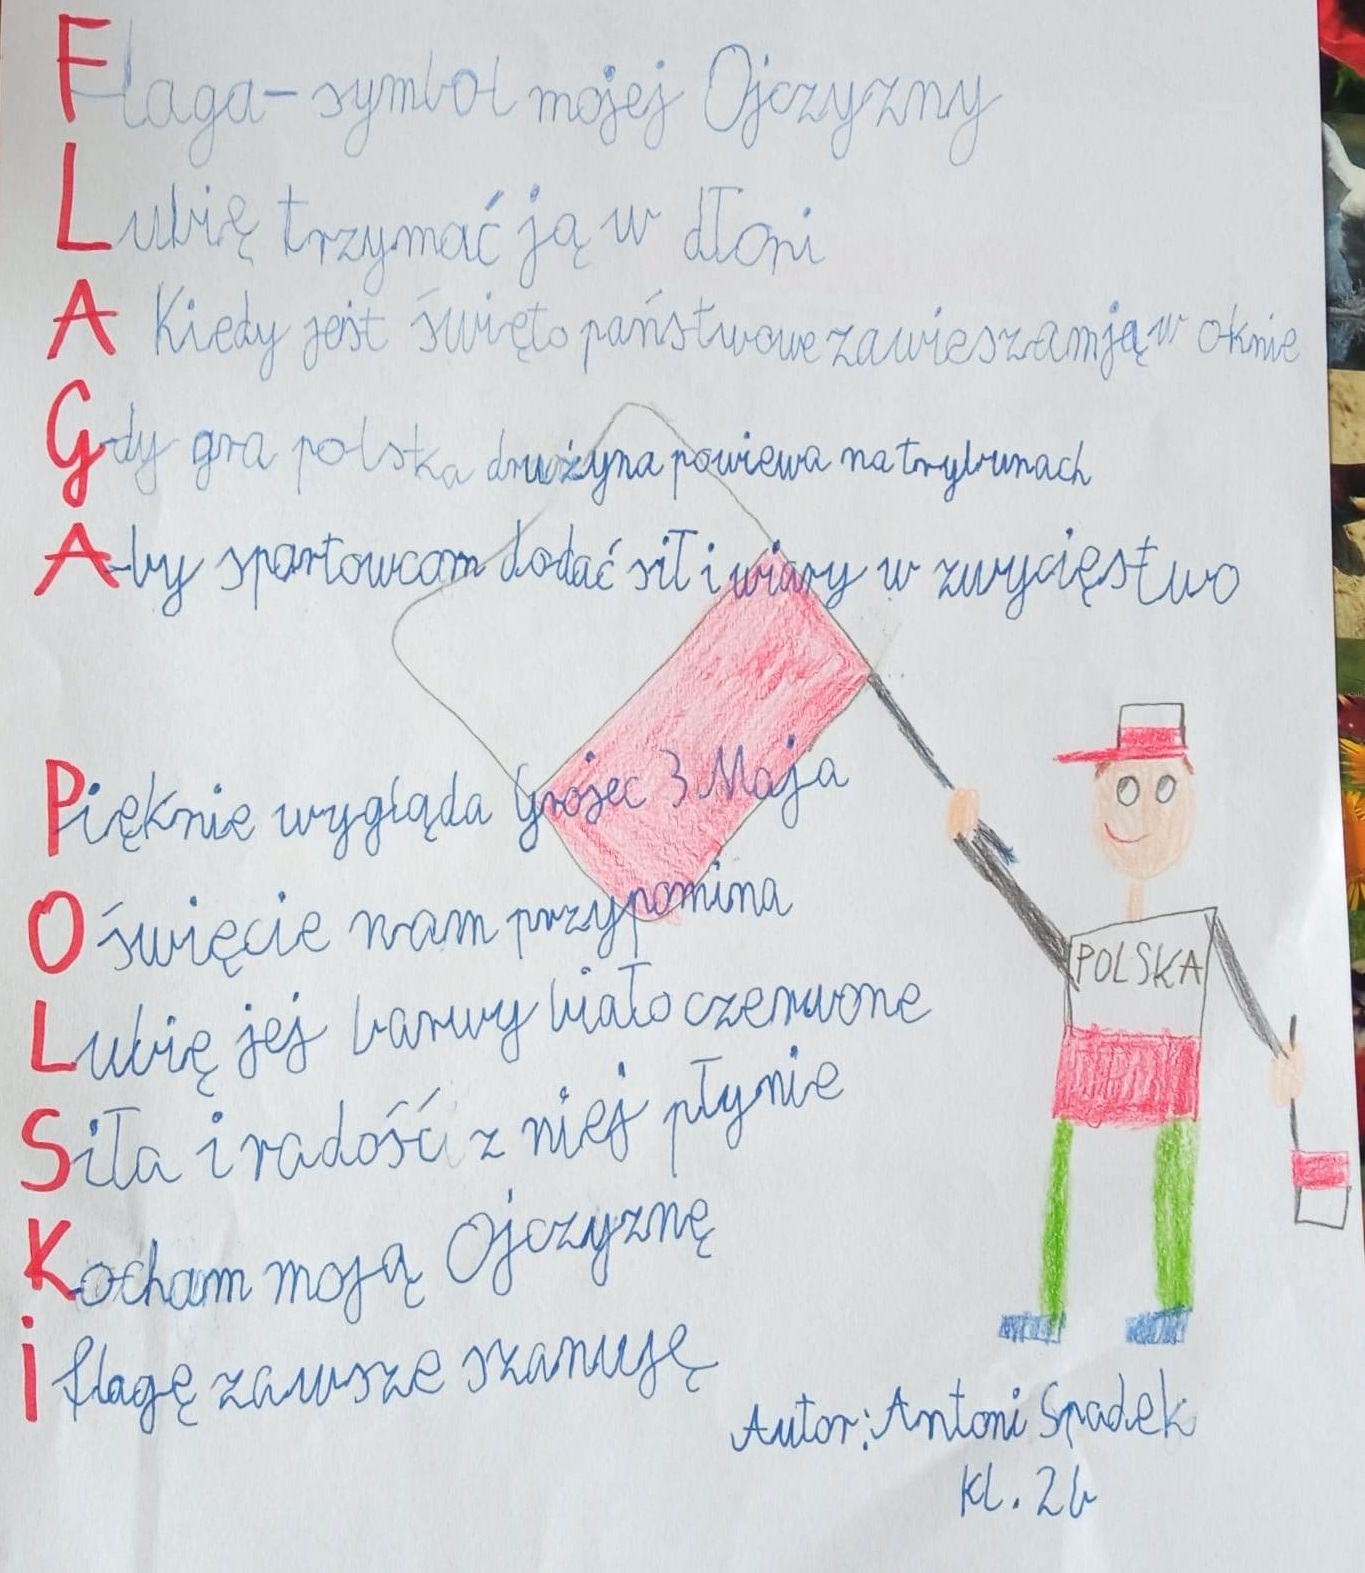 Flaga - symbol mojej Ojczyzny
Lubię trzymać ją w dłoni
A Kiedy jest święto państwowe zawieszam ją w oknie
Gdy gra polska drużyna powiewa na trybunach
Aby sportowcom dodać sił i wiary w zwycięstwo
Pięknie wygląda Grojec 3 Maja
O święcie nam przypomina
Lubię jej barwy biało czerwone
Siła i radość z niej płynie
Kocham moją Ojczyznę
i flagę zawsze szanuję
POLSKA
Autor: Antoni Spadek
kl. 2b